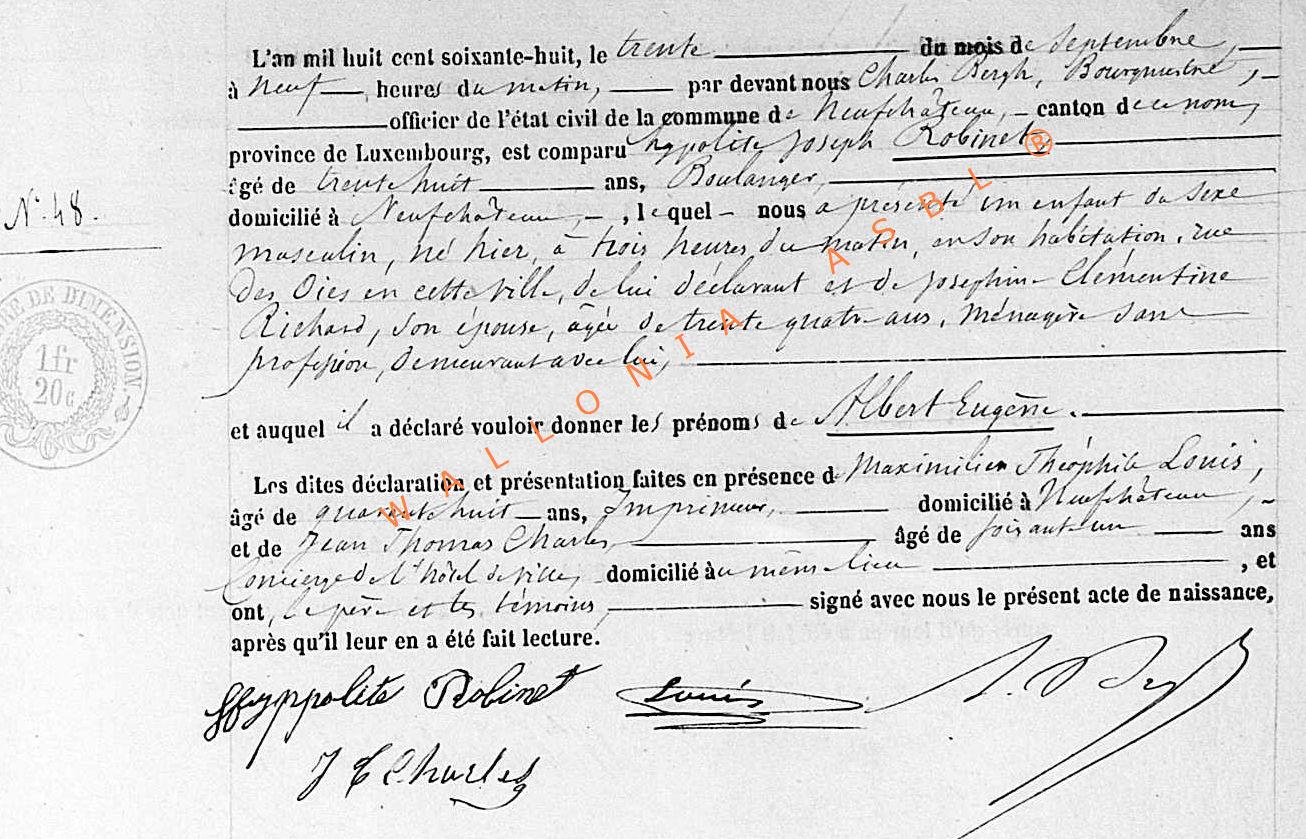 L'an mil huit cent soixante-huit, le trente du mois de Septembre,
à Neuf heures du matin, par devant nous Charles Bergh, Bourgmestre,
officier de l'état civil de la commune de Neufchâteau, canton de ce nom,
province de Luxembourg, est comparu hyppolite Joseph Robinet,
âgé de trente huit ans, Boulanger,
N° 48.
domicilié à Neufchâteau, , lequel nous a présenté un enfant du sexe
masculin, né hier, à trois heures du matin, en son habitation, rue
des Oies en cette ville, de lui déclarant et de Josephine Clémentine
Richard, son épouse, âgée de trente quatre ans, Ménagère sans
profession, demeurant avec lui,
DE DIMENSION
1 fr
20 c
et auquel il a déclaré vouloir donner les prénoms de Albert Eugène.
Les dites déclaration et présentation faites en présence de Maximilien Théophile Louis,
âgé de quarante huit ans, Imprimeur, domicilié à Neufchâteau,
et de Jean Thomas Charles, âgé de soixante un ans
Concierge de l'hôtel de ville, domicilié au même lieu , et
ont, le père et les témoins, signé avec nous le présent acte de naissance,
après qu'il leur en a été fait lecture.
Hyppolite Robinet Louis
J T Charles
WALLONIA ASBL ®